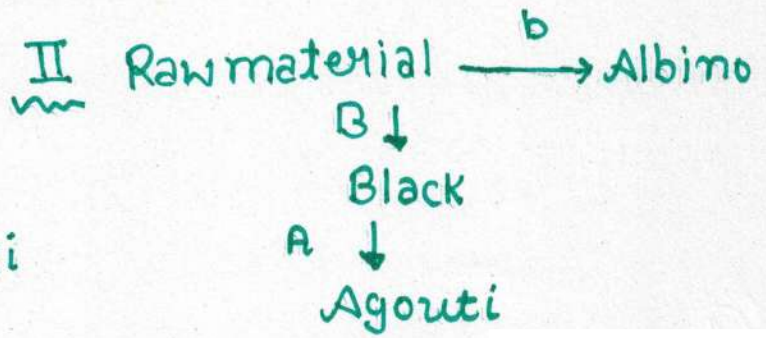 b
II Raw material → Albino
B ↓
Black
i A ↓
Agouti